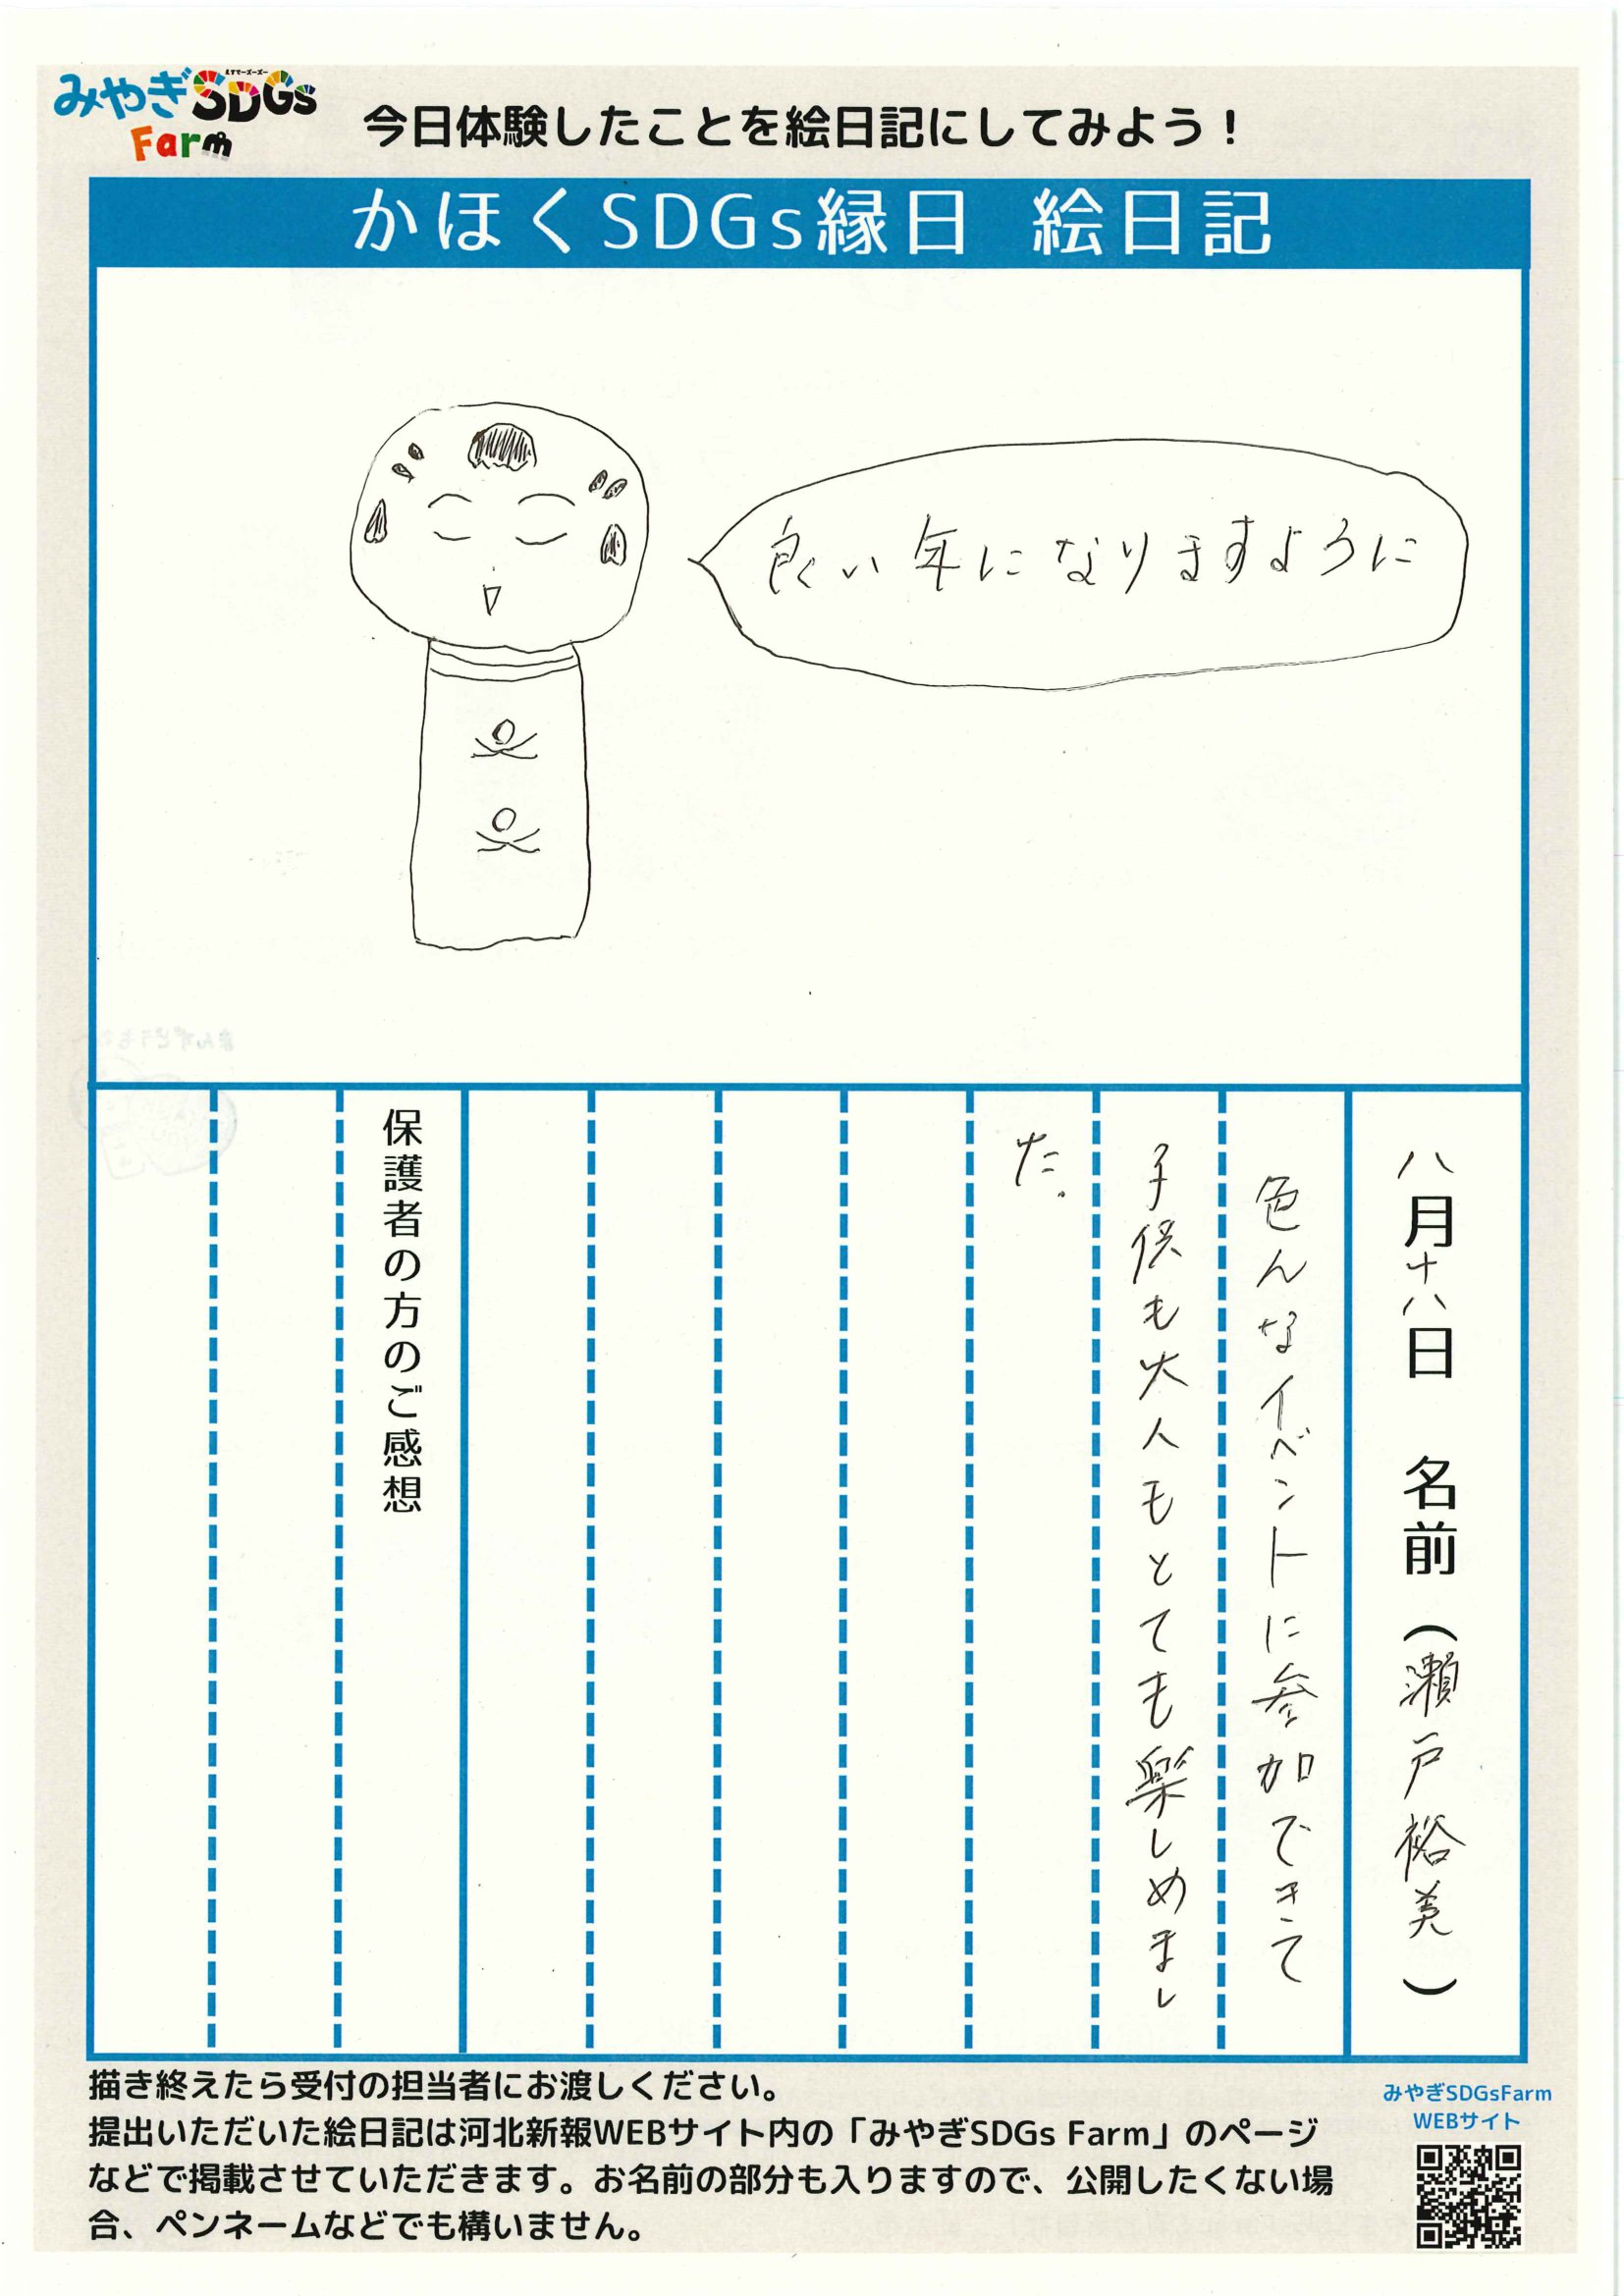 みやぎSDGs
エスディージーズ
Farm
今日体験したことを絵日記にしてみよう！
かほくSDGs縁日 絵日記
良い年になりますように
八月十八日 名前（瀬戸裕美）
色んなイベントに参加できて
子供も大人もとても楽しめまし
た。
保護者の方のご感想
描き終えたら受付の担当者にお渡しください。
提出いただいた絵日記は河北新報WEBサイト内の「みやぎSDGs Farm」のページ
などで掲載させていただきます。お名前の部分も入りますので、公開したくない場
合、ペンネームなどでも構いません。
みやぎSDGsFarm
WEBサイト